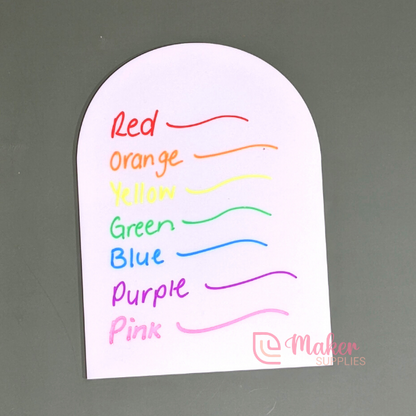 Red
Orange
Yellow
Green
Blue
Purple
Pink
Maker
SUPPLIES